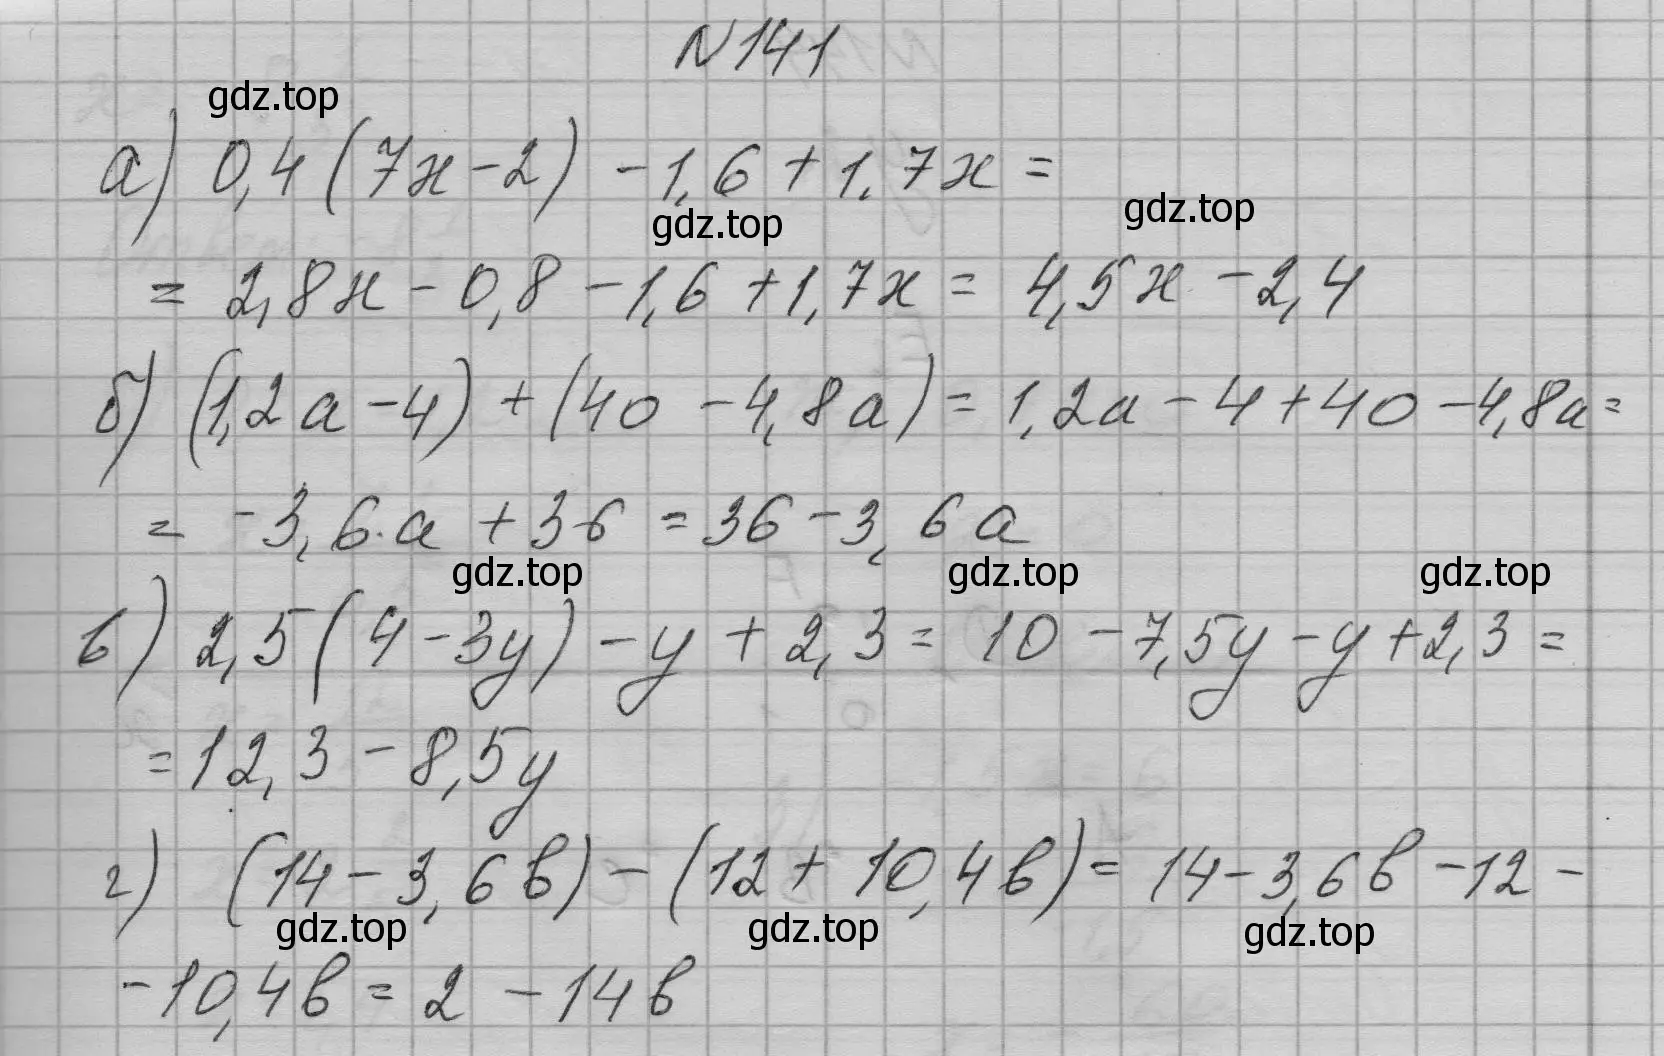 N141
gdz.top
а) 0,4(7x-2) -1,6+1,7x=
gdz.top gdz.top
= 2,8x - 0,8 - 1,6 + 1,7x = 4,5x - 2,4
б) (1,2a-4) + (40 - 4,8a) = 1,2a - 4 + 40 - 4,8a =
= -3,6·a + 36 = 36 - 3,6a
gdz.top gdz.top gdz.top
в) 2,5(4-3y) - y + 2,3 = 10 - 7,5y - y + 2,3 =
= 12,3 - 8,5y
г) (14-3,6b) - (12 + 10,4b) = 14 - 3,6b - 12 -
gdz.top gdz.top gdz.top
-10,4b = 2 - 14b